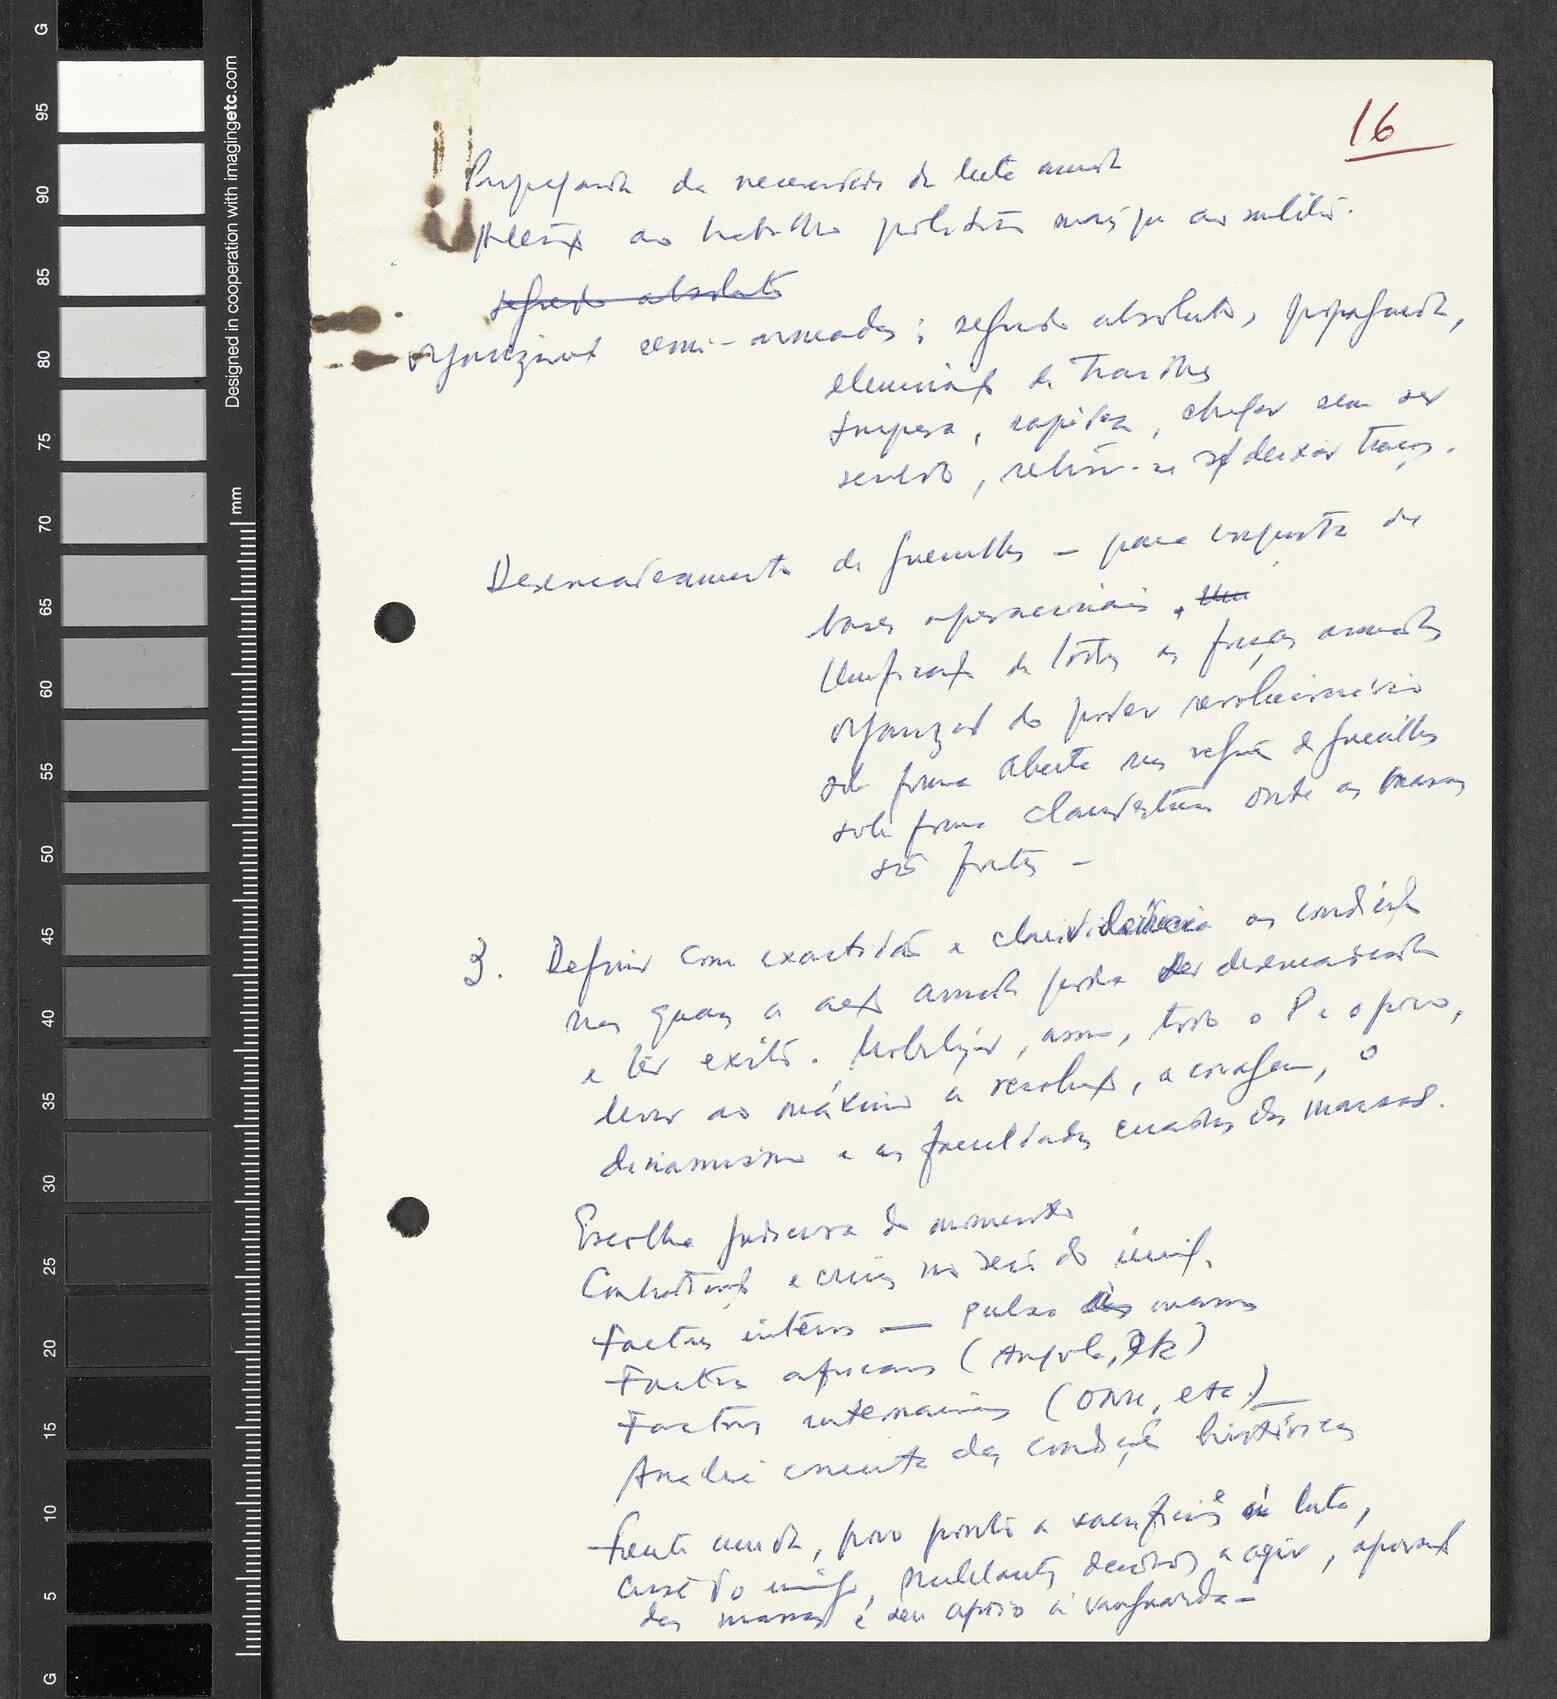 16
Propaganda da necessidade da luta armada
Atenção ao trabalho político mais que ao militar.
segredo absoluto
organização semi-armadas; segredo absoluto, propaganda,
eliminação de traidores
surpresa, rapidez, chegar sem ser
sentido, retirar-se s/ deixar traços.
Desencadeamento de guerrilhas — para conquista de
bases operacionais.
Unificação de tôdas as forças armadas
organização do poder revolucionário
sob forma aberta nas regiões de guerrilhas
sob forma clandestina onde as massas
são fortes —
3. Definir com exactidão e clarividência as condições
nas quais a acção armada poderá ser desencadeada
e ter exito. Mobilizar, assim, todo o P e o povo,
levar ao máximo a resolução, a coragem, o
dinamismo e as faculdades criadoras das massas.
Escolha judiciosa do momento
Contradições e crises no seio do inimigo.
Factores internos — pulso das massas
Factores africanos (Angola, etc)
Factores internacionais (ONU, etc.) —
Análise concreta das condições históricas
Frente unida, povo pronto a sacrifícios e à luta,
crise do inimigo, militantes decididos a agir,
das massas e seu apoio à vanguarda —
95
90
85
80
75
70
65
60
55
50
45
40
35
30
25
20
15
10
5
G
G
mm
Designed in cooperation with imagingetc.com